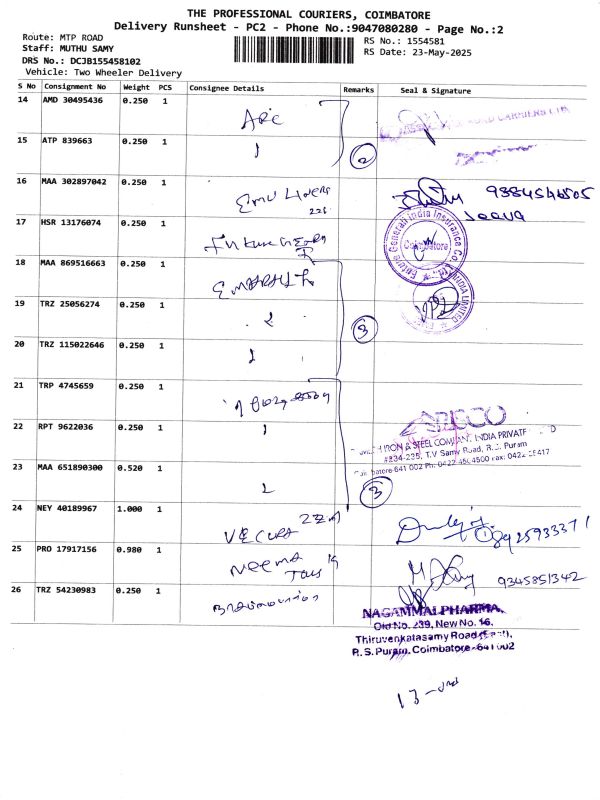 THE PROFESSIONAL COURIERS, COIMBATORE
Delivery Runsheet - PC2 - Phone No.:9047080280 - Page No.:2
Route: MTP ROAD
RS No.: 1554581
Staff: MUTHU SAMY
RS Date: 23-May-2025
DRS No.: DCJB155458102
Vehicle: Two Wheeler Delivery
S No Consignment No Weight PCS Consignee Details Remarks Seal & Signature
14 AMD 30495436 0.250 1 ARC
15 ATP 839663 0.250 1
2
16 MAA 302897042 0.250 1
9384546505
17 HSR 13176074 0.250 1
Future Generali India Insurance Co.
Coimbatore
18 MAA 869516663 0.250 1
INDIA LIMITED
19 TRZ 25056274 0.250 1
3
20 TRZ 115022646 0.250 1
21 TRP 4745659 0.250 1
22 RPT 9622036 0.250 1
IRON & STEEL COMPANY INDIA PRIVATE
#234-235, T.V Samy Road, R.S. Puram
23 MAA 651890300 0.520 1
3
24 NEY 40189967 1.000 1
8925933371
25 PRO 17917156 0.980 1 Neema
9345851342
26 TRZ 54230983 0.250 1
NAGAMMAI PHARMA,
Old No. 239, New No. 16,
Thiruvenkatasamy Road (East),
R.S. Puram, Coimbatore-641 002